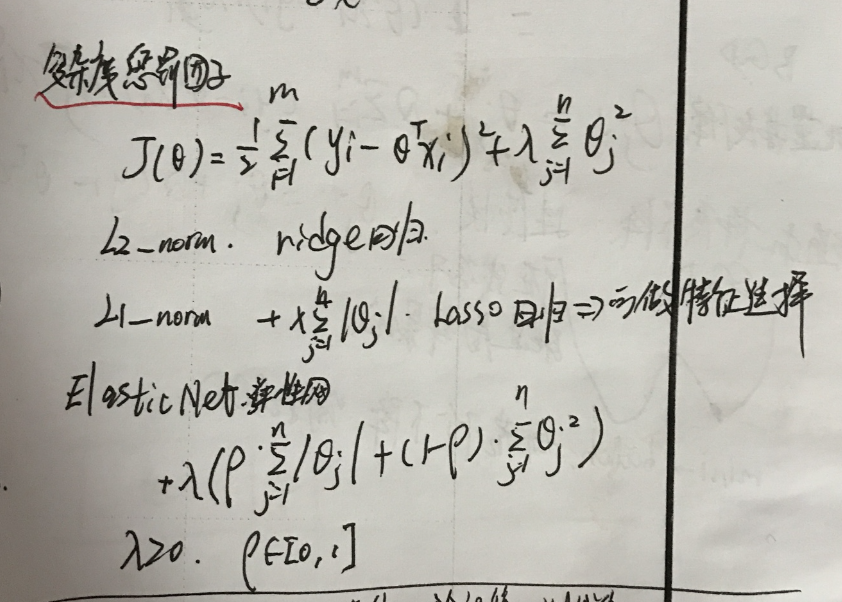 复杂度惩罚因子
J(θ) = 1/2 Σ_{i=1}^{m} (yi − θ^T xi)² + λ Σ_{j=1}^{n} θj²
L2_norm. ridge回归.
L1_norm + λ Σ_{j=1}^{n} |θj|. Lasso回归 => 可做特征选择
Elastic Net.弹性网
+λ(ρ·Σ_{j=1}^{n} |θj| + (1-ρ)·Σ_{j=1}^{n} θj²)
λ≥0. ρ∈[0,1]